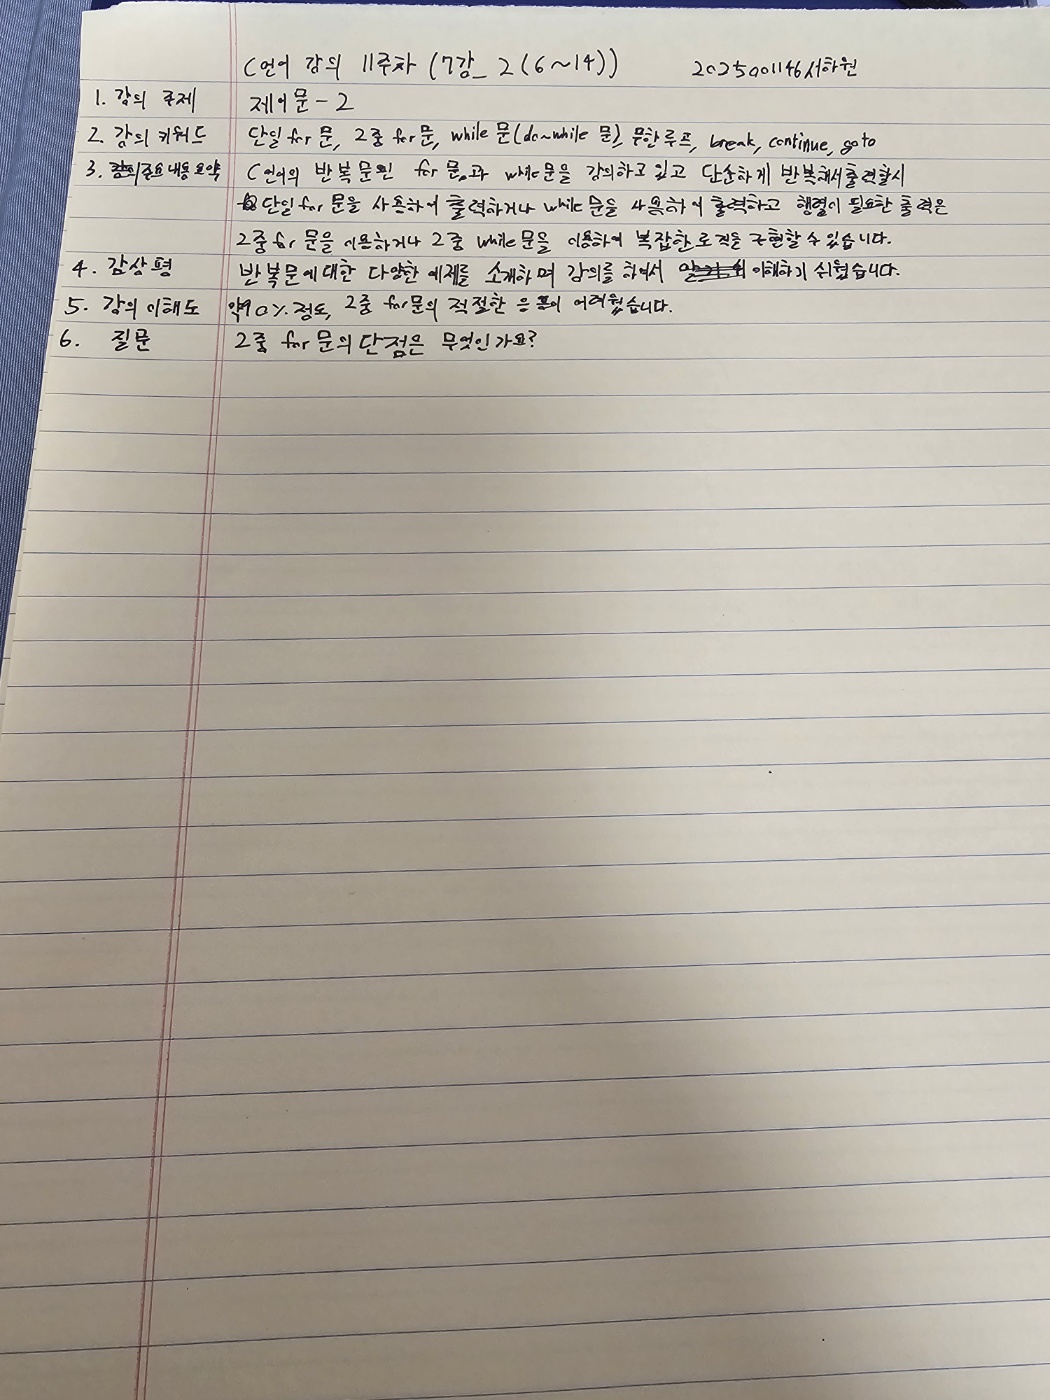 C언어 강의 11주차 (7강_2(6~14)) 2025001146서하원
1. 강의 주제 제어문-2
2. 강의 키워드 단일 for 문, 2중 for 문, while 문(do~while 문), 무한루프, break, continue, goto
3. 강의주요내용요약 C언어의 반복문인 for 문과 while문을 강의하고 있고 단순하게 반복해서 출력할시
단일 for 문을 사용하여 출력하거나 while 문을 사용하여 출력하고 행렬이 필요한 출력은
2중 for 문을 이용하거나 2중 while문을 이용하여 복잡한 로직을 구현할 수 있습니다.
4. 감상평 반복문에 대한 다양한 예제를 소개하며 강의를 하여서 이해하기 쉬웠습니다.
5. 강의 이해도 약90% 정도, 2중 for문의 적절한 어려웠습니다.
6. 질문 2중 for 문의 단점은 무엇인가요?